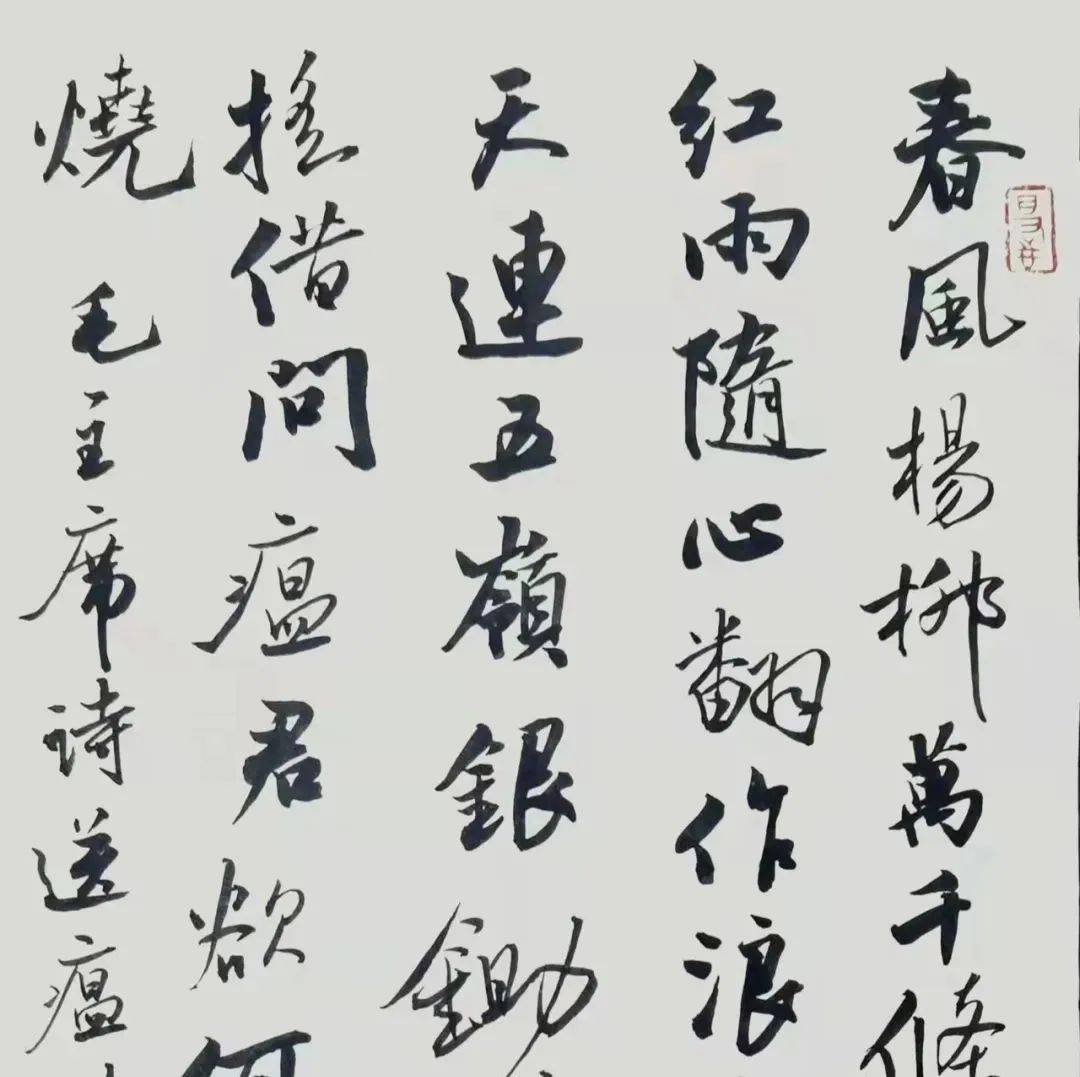 春風楊柳萬千條
紅雨隨心翻作浪
天連五嶺銀鋤
搖借問瘟君欲何
燒 毛主席詩送瘟